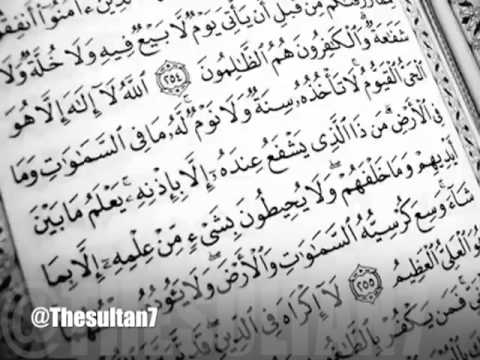 ءَامَنُوٓا۟ أَنفِقُوا۟
رَزَقْنَـٰكُم مِّن قَبْلِ أَن يَأْتِىَ يَوْمٌ لَّا بَيْعٌ فِيهِ وَلَا خُلَّةٌ وَلَا
شَفَـٰعَةٌ ۗ وَٱلْكَـٰفِرُونَ هُمُ ٱلظَّـٰلِمُونَ ٢٥٤ ٱللَّهُ لَآ إِلَـٰهَ إِلَّا هُوَ
ٱلْحَىُّ ٱلْقَيُّومُ ۚ لَا تَأْخُذُهُۥ سِنَةٌ وَلَا نَوْمٌ ۚ لَّهُۥ مَا فِى ٱلسَّمَـٰوَٰتِ وَمَا
فِى ٱلْأَرْضِ ۗ مَن ذَا ٱلَّذِى يَشْفَعُ عِندَهُۥٓ إِلَّا بِإِذْنِهِۦ ۚ يَعْلَمُ مَا بَيْنَ
أَيْدِيهِمْ وَمَا خَلْفَهُمْ ۖ وَلَا يُحِيطُونَ بِشَىْءٍ مِّنْ عِلْمِهِۦٓ إِلَّا بِمَا
شَآءَ ۚ وَسِعَ كُرْسِيُّهُ ٱلسَّمَـٰوَٰتِ وَٱلْأَرْضَ ۖ وَلَا يَـُٔودُهُۥ
وَهُوَ ٱلْعَلِىُّ ٱلْعَظِيمُ ٢٥٥ لَآ إِكْرَاهَ فِى ٱلدِّينِ ۖ قَد
فَمَن يَكْفُرْ
@Thesultan7